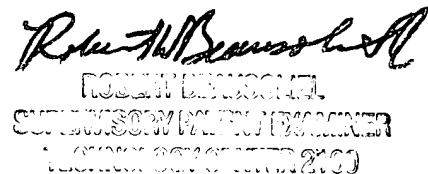 Robert W Beausoliel
ROBERT BEAUSOLIEL
SUPERVISORY PATENT EXAMINER
TECHNOLOGY CENTER 2100